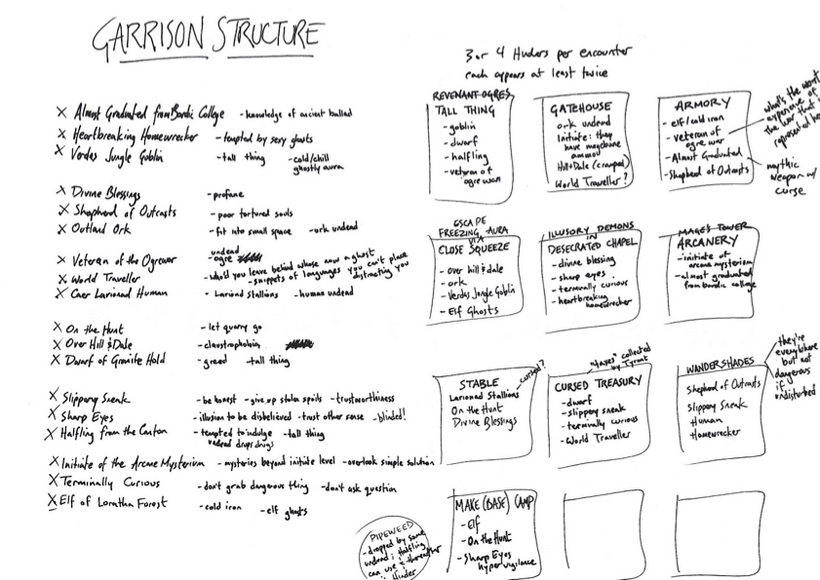 GARRISON STRUCTURE
3 or 4 Hinders per encounter
each appears at least twice
X Almost Graduated from Bardic College - knowledge of ancient ballad
X Heartbreaking Homewrecker - tempted by sexy ghosts
X Verdes Jungle Goblin - tall thing - cold/chill
ghostly aura
X Divine Blessings - profane
X Shepherd of Outcasts - poor tortured souls
X Outland Ork - fit into small space - ork undead
X Veteran of the Ogrewar - undead ogre
X World Traveller - who'd you leave behind whose now a ghost
- snippets of languages you can't place
distracting you
X Caer Larional Human - Larional Stallions - human undead
X On the Hunt - let quarry go
X Over Hill & Dale - claustrophobia
X Dwarf of Granite Hold - greed - tall thing
X Slippery Sneak - be honest - give up stolen spoils - trustworthiness
X Sharp Eyes - illusion to be disbelieved - trust other sense - blinded!
X Halfling from the Canton - tempted to indulge - tall thing
undead drops drugs
X Initiate of the Arcane Mysterium - mysteries beyond initiate level - overlook simple solution
X Terminally Curious - don't grab dangerous thing - don't ask question
X Elf of Loratha Forest - cold iron - elf ghosts
REVENANT OGRES
TALL THING
- goblin
- dwarf
- halfling
- veteran of
ogre war
GATEHOUSE
ork undead
initiate: they
have
Hill & Dale (cramped)
World Traveller?
ARMORY
- elf/cold iron
- veteran of
ogre war
- Almost Graduated
- Shepherd of Outcasts
what's the worst
experience of
the war that is
represented here
mythic
weapon w/
curse
ESCAPE
FREEZING AURA
VIA
CLOSE SQUEEZE
- over hill & dale
- ork
- Verdes Jungle Goblin
- Elf Ghosts
ILLUSORY DEMONS
IN
DESECRATED CHAPEL
- divine blessing
- sharp eyes
- terminally curious
- heartbreaking
homewrecker
MAGE'S TOWER
ARCANERY
- initiate of
arcane mysterium
- almost graduated
from bardic college
STABLE
cursed?
Larional Stallions
On the Hunt
Divine Blessings
"taxes" collected
by Tyrant
CURSED TREASURY
- dwarf
- slippery sneak
- terminally curious
- World Traveller
WANDERSHADES
Shepherd of Outcasts
Slippery Sneak
Human
Homewrecker
they're
everywhere
but not
dangerous
if
undisturbed
MAKE (BASE) CAMP
- Elf
- On the Hunt
- Sharp Eyes
hypervigilance
PIPEWEED
- dropped by some
undead; Halfling
can use
Hinder